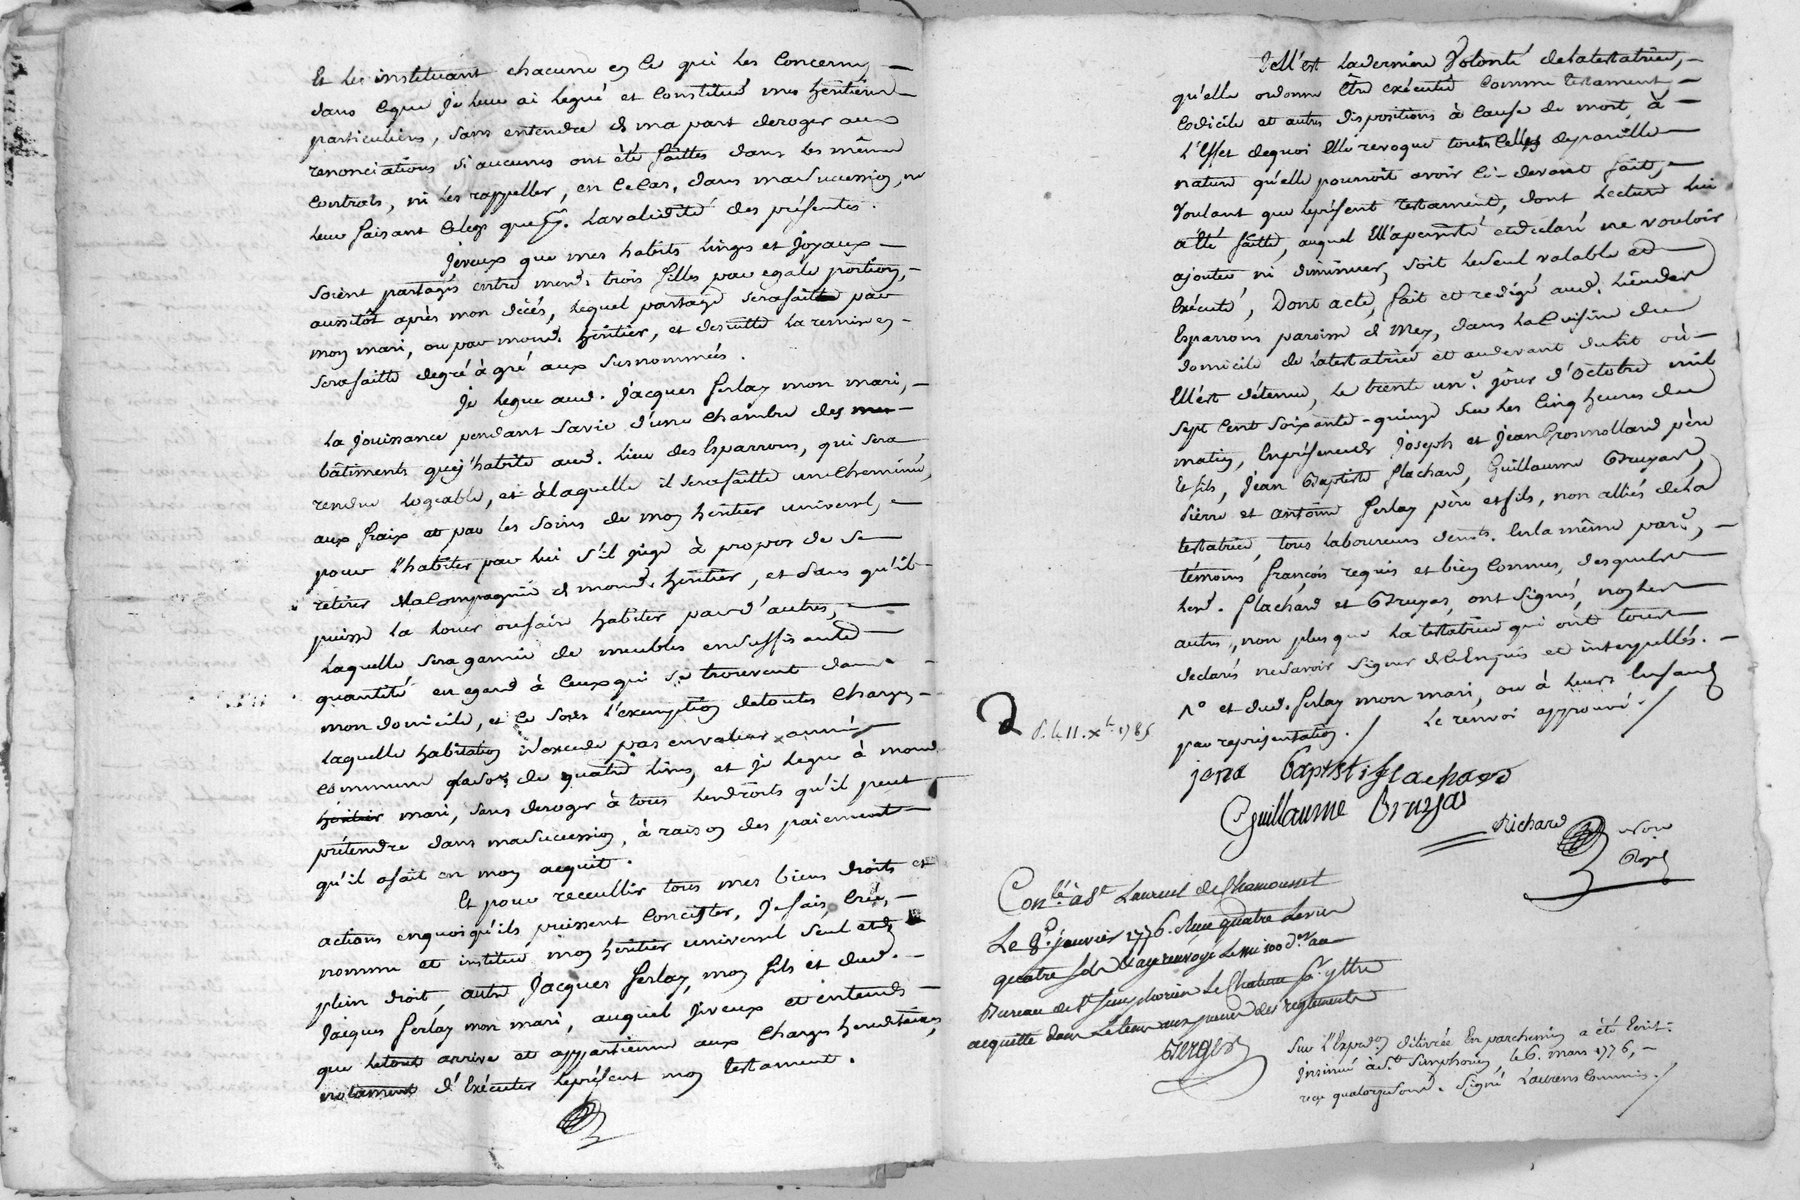 Et les instituant chacune en ce qui les concerne
dans ce que je leur ai legué et constitué mes héritieres
particulieres, sans entendre de ma part deroger aux
renonciations si aucunes ont été faittes dans les mêmes
contrats, ni les rappeller, en ce cas, dans ma succession, ne
leur faisant ce legs que pr. la validité des présentes.
Je veux que mes habits linges et joyaux
soient partagés entre mesd. trois filles par egale portion,
aussitôt après mon décés, lequel partage sera fait par
mon mari, ou par mond. héritier, et desuitte la remise en
sera faitte de gré à gré aux susnommées.
Je legue aud. Jacques ferlay mon mari,
la jouissance pendant sa vie d'une chambre des
bâtiments que j'habite aud. lieu des Esparrons, qui sera
rendue logeable, et à laquelle il sera faitte une cheminée,
aux fraix et par les soins de mon héritier universel,
pour l'habiter par lui s'il juge à propos de se
retirer de la compagnie de mond. héritier, et sans qu'il
puisse la louer ou faire habiter par d'autres,
laquelle sera garnie de meubles en suffisante
quantité en egard à ceux qui se trouveront dans
mon domicile, et ce sous l'exemption de toutes charges
laquelle habitation n'excede pas en valeur année
commune plus de quatre livres, et je legue à mond.
héritier mari, sans deroger à tous les droits qu'il peut
prétendre dans ma succession, à raison des paiements
qu'il a fait en mon acquit.
Et pour receullir tous mes biens droits et
actions en quoi qu'ils puissent concister, je fais, crée,
nomme et institue mon héritier universel seul et de
plein droit, autre Jacques ferlay, mon fils et dud.
Jacques ferlay mon mari, auquel je veux et entends
que le tout arrive et appartienne aux charges hereditaires,
notament d'exécuter le présent mon testament.
Telle est la derniere volonté de la testatrice,
qu'elle ordonne être exécutée comme testament,
codicile et autres dispositions à cause de mort, à
l'effet de quoi elle revoque toutes celles de pareille
nature qu'elle pourroit avoir ci-devant fait,
voulant que le présent testament, dont lecture lui
a été faitte, auquel elle a persisté et déclaré ne vouloir
ajouter, ni diminuer, soit le seul valable et
exécuté, Dont acte, fait et redigé aud. lieu des
Esparrons paroisse de Meys, dans la cuisine du
domicile de la testatrice et au devant du lit où
elle est détenue, le trente un.e jour d'octobre mil
sept cent soixante-quinze sur les cinq heures du
matin, en présence de Joseph et Jean Grosmollard père
et fils, Jean Baptiste flachard, Guillaume Bruyas,
Pierre et antoine ferlay père et fils, non alliés de la
testatrice, tous laboureurs demts. en la même par.e,
témoins françois requis et bien connus, desquels
lesd. flachard et Bruyas, ont signés, non les
autres, non plus que la testatrice qui ont tous
declarés ne savoir signer de ce enquis et interpellés.
1° et dud. ferlay mon mari, ou à leurs enfants
par représentation. / Le renvoi approuvé. /
d. le 11. xbre 1785
jean Baptisti flachard
Guillaume Bruyas
Richard
Nore
Royal
Conlé. à St Laurent de Chamousset
Le 8e. janvier 1776. Reçu quatre livres
quatre sols & ay renvoyé le mi 100 d.er au
Bureau de St simphorien le chateau pr. y être
acquitté dans le temps aux peines des reglements
Berger
Sur l'Expedon. délivrée en parchemin a été Ecrit:
Insinué à St. Simphorien le 6. mars 1776,
reçu quatorze sous. Signé Laurens Commis. /